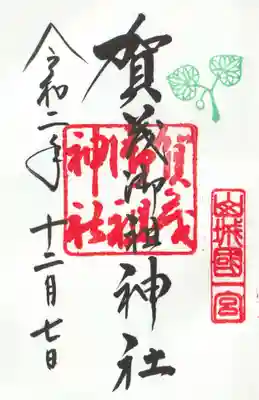 山城國一宮
賀茂御祖神社
賀茂御祖神社
令和二年 十二月七日